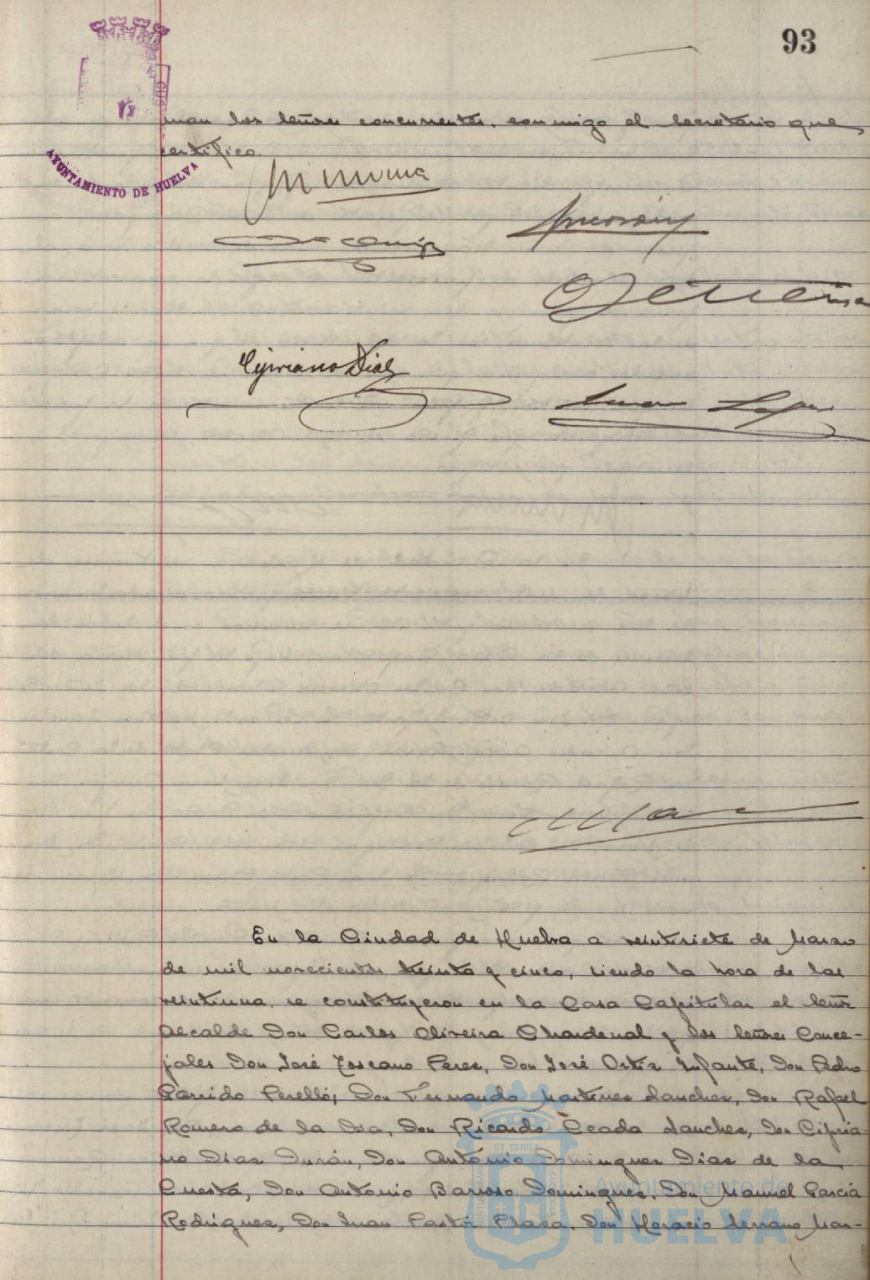 93
AYUNTAMIENTO DE HUELVA
man los señores concurrentes, conmigo el secretario que
certifico.
Cipriano Díaz
En la Ciudad de Huelva a veintisiete de Marzo
de mil novecientos treinta y cinco, siendo la hora de las
veintiuna, se constituyeron en la Casa Capitular el señor
Alcalde Don Carlos Oliveira Chardenal y los señores Conce-
jales Don José Toscano Perez, Don José Ortiz Infante, Don Pedro
Garrido Perelló, Don Fernando Martinez Sanchez, Don Rafael
Romero de la Isa, Don Ricardo Terrades Sanchez, Don Cipria-
no Diaz Durán, Don António Dominguez Diaz de la
Cuesta, Don António Barroso Dominguez, Don Manuel García
Rodriguez, Don Juan Pastor Plaza, Don Horacio Serrano Mar-
Ayuntamiento de
HUELVA